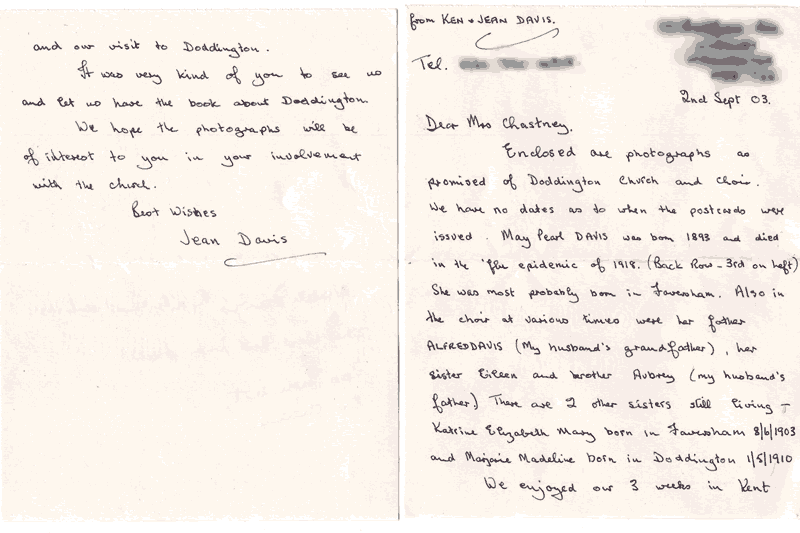 from KEN & JEAN DAVIS.
Tel.
2nd Sept 03.
Dear Mrs Chastney,
Enclosed are photographs as
promised of Doddington Church and Choir.
We have no dates as to when the postcards were
issued. May Pearl DAVIS was born 1893 and died
in the 'flu epidemic of 1918. (Back Row - 3rd on left)
She was most probably born in Faversham. Also in
the choir at various times were her father
ALFRED DAVIS (My husband's grandfather), her
sister Eileen and brother Aubrey (my husband's
father.) There are 2 other sisters still living -
Katrine Elizabeth Mary born in Faversham 8/6/1903
and Marjorie Madeline born in Doddington 1/5/1910
We enjoyed our 3 weeks in Kent
and our visit to Doddington.
It was very kind of you to see us
and let us have the book about Doddington.
We hope the photographs will be
of interest to you in your involvement
with the church.
Best Wishes
Jean Davis